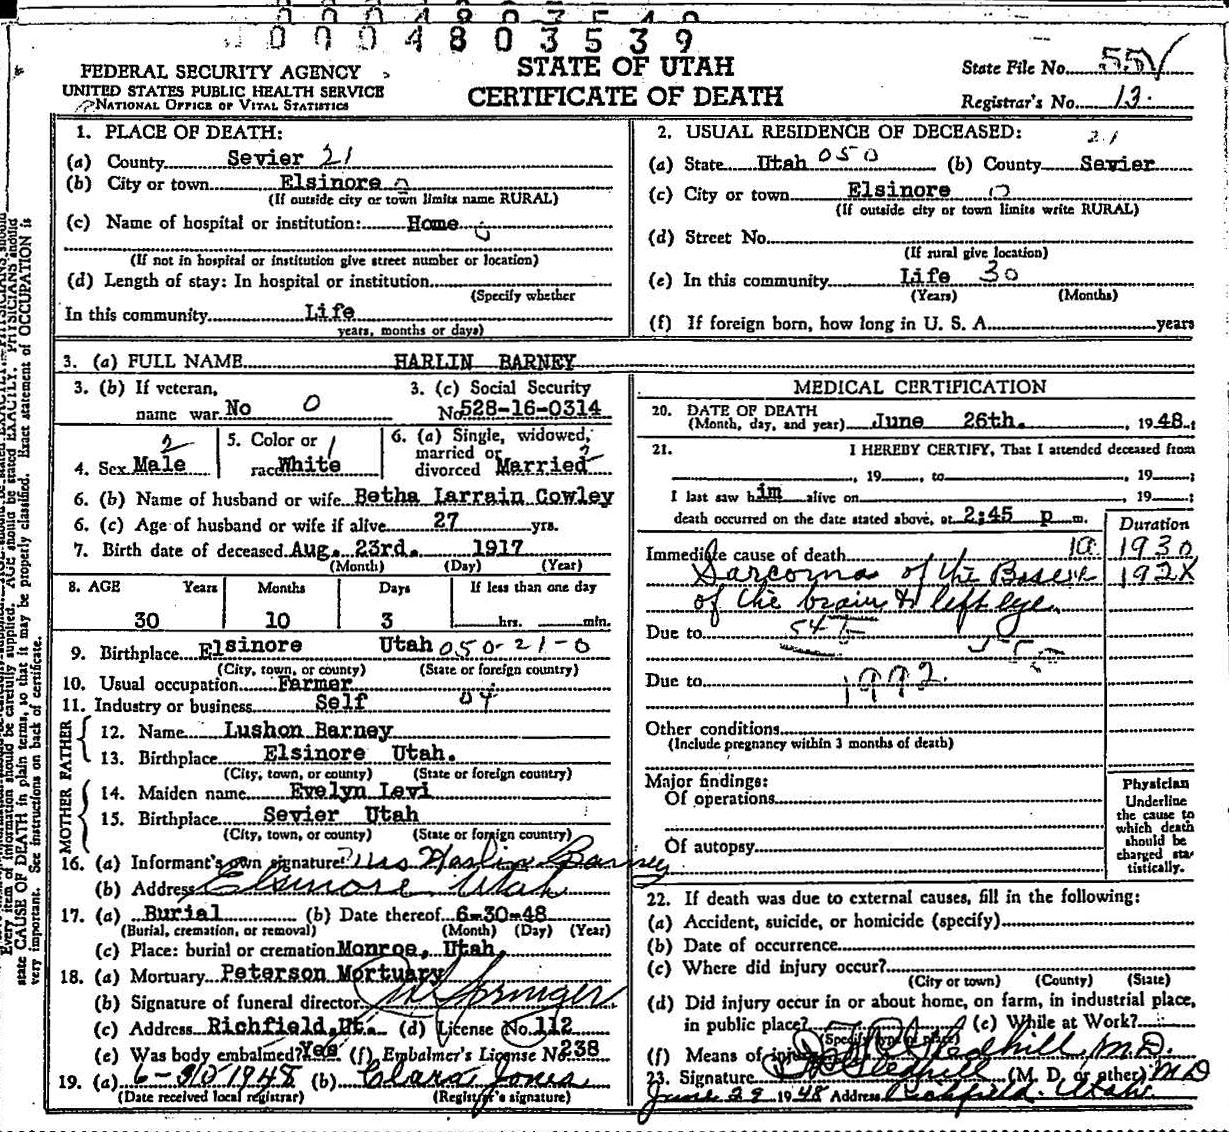 0004803539
FEDERAL SECURITY AGENCY
UNITED STATES PUBLIC HEALTH SERVICE
NATIONAL OFFICE OF VITAL STATISTICS
STATE OF UTAH
CERTIFICATE OF DEATH
State File No. 55
Registrar's No. 13.
1. PLACE OF DEATH:
(a) County Sevier 21
(b) City or town Elsinore
(If outside city or town limits name RURAL)
(c) Name of hospital or institution: Home
(If not in hospital or institution give street number or location)
(d) Length of stay: In hospital or institution
(Specify whether
In this community Life
years, months or days)
2. USUAL RESIDENCE OF DECEASED:
21
(a) State Utah 050 (b) County Sevier
(c) City or town Elsinore
(If outside city or town limits write RURAL)
(d) Street No.
(If rural give location)
(e) In this community Life 30
(Years) (Months)
(f) If foreign born, how long in U. S. A. years
3. (a) FULL NAME HARLIN BARNEY
3. (b) If veteran,
name war No 0
3. (c) Social Security
No. 528-16-0314
4. Sex Male 2
5. Color or 1
race White
6. (a) Single, widowed,
married or
divorced Married 2
6. (b) Name of husband or wife Betha Larrain Cowley
6. (c) Age of husband or wife if alive 27 yrs.
7. Birth date of deceased Aug. 23rd. 1917
(Month) (Day) (Year)
8. AGE Years Months Days If less than one day
30 10 3 hrs. min.
9. Birthplace Elsinore Utah 050-21-0
(City, town, or county) (State or foreign country)
10. Usual occupation Farmer
11. Industry or business Self 04
FATHER
12. Name Lushon Barney
13. Birthplace Elsinore Utah.
(City, town, or county) (State or foreign country)
MOTHER
14. Maiden name Evelyn Levi
15. Birthplace Sevier Utah
(City, town, or county) (State or foreign country)
16. (a) Informant's own signature: Mrs Harlin Barney
(b) Address Elsinore Utah
17. (a) Burial (b) Date thereof 6-30-48
(Burial, cremation, or removal) (Month) (Day) (Year)
(c) Place: burial or cremation Monroe, Utah.
18. (a) Mortuary Peterson Mortuary
(b) Signature of funeral director Springer
(c) Address Richfield, Ut. (d) License No. 112
(e) Was body embalmed? Yes (f) Embalmer's License No. 238
19. (a) 6-30 1948 (b) Clara Jones
(Date received local registrar) (Registrar's signature)
MEDICAL CERTIFICATION
20. DATE OF DEATH
(Month, day, and year) June 26th. , 1948.;
21. I HEREBY CERTIFY, That I attended deceased from
, 19 , to , 19 ;
I last saw him alive on , 19 ;
death occurred on the date stated above, at 2:45 p m.
Duration
Immediate cause of death 1a 1930
Sarcoma of the Base 192X
of the brain & left eye
Due to 54
Due to 1992.
Other conditions
(Include pregnancy within 3 months of death)
Major findings:
Of operations
Of autopsy
Physician
Underline
the cause to
which death
should be
charged sta-
tistically.
22. If death was due to external causes, fill in the following:
(a) Accident, suicide, or homicide (specify)
(b) Date of occurrence
(c) Where did injury occur?
(City or town) (County) (State)
(d) Did injury occur in or about home, on farm, in industrial place,
in public place? (e) While at Work?
(Specify type of place)
(f) Means of injury Gledhill M.D.
23. Signature Gledhill (M. D. or other) MD
June 29 1948 Address Richfield. Utah.
Every item of information should be carefully supplied. AGE should be stated EXACTLY. PHYSICIANS should
state CAUSE OF DEATH in plain terms, so that it may be properly classified. Exact statement of OCCUPATION is
very important. See instructions on back of certificate.